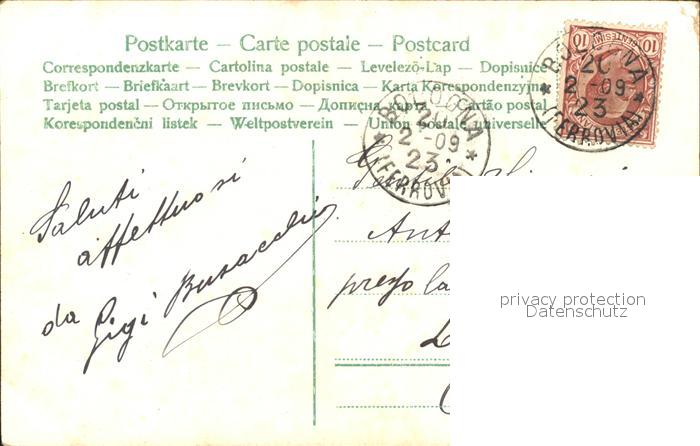 Postkarte — Carte postale — Postcard
Correspondenzkarte — Cartolina postale — Levelező-Lap — Dopisnice
Brefkort — Briefkaart — Brevkort — Dopisnica — Karta Korespondenzyjna
Tarjeta postal — Открытое письмо — Дописна карта — Cartão postal
Korespondenční listek — Weltpostverein — Union postale universelle
BOLOGNA
20
2-09
23
(FERROVIA)
BOLOGNA
20
2-09
23
(FERROVIA)
10 10
Saluti
affettuosi
da Gigi Busacchi
Ant
presso la
privacy protection
Datenschutz